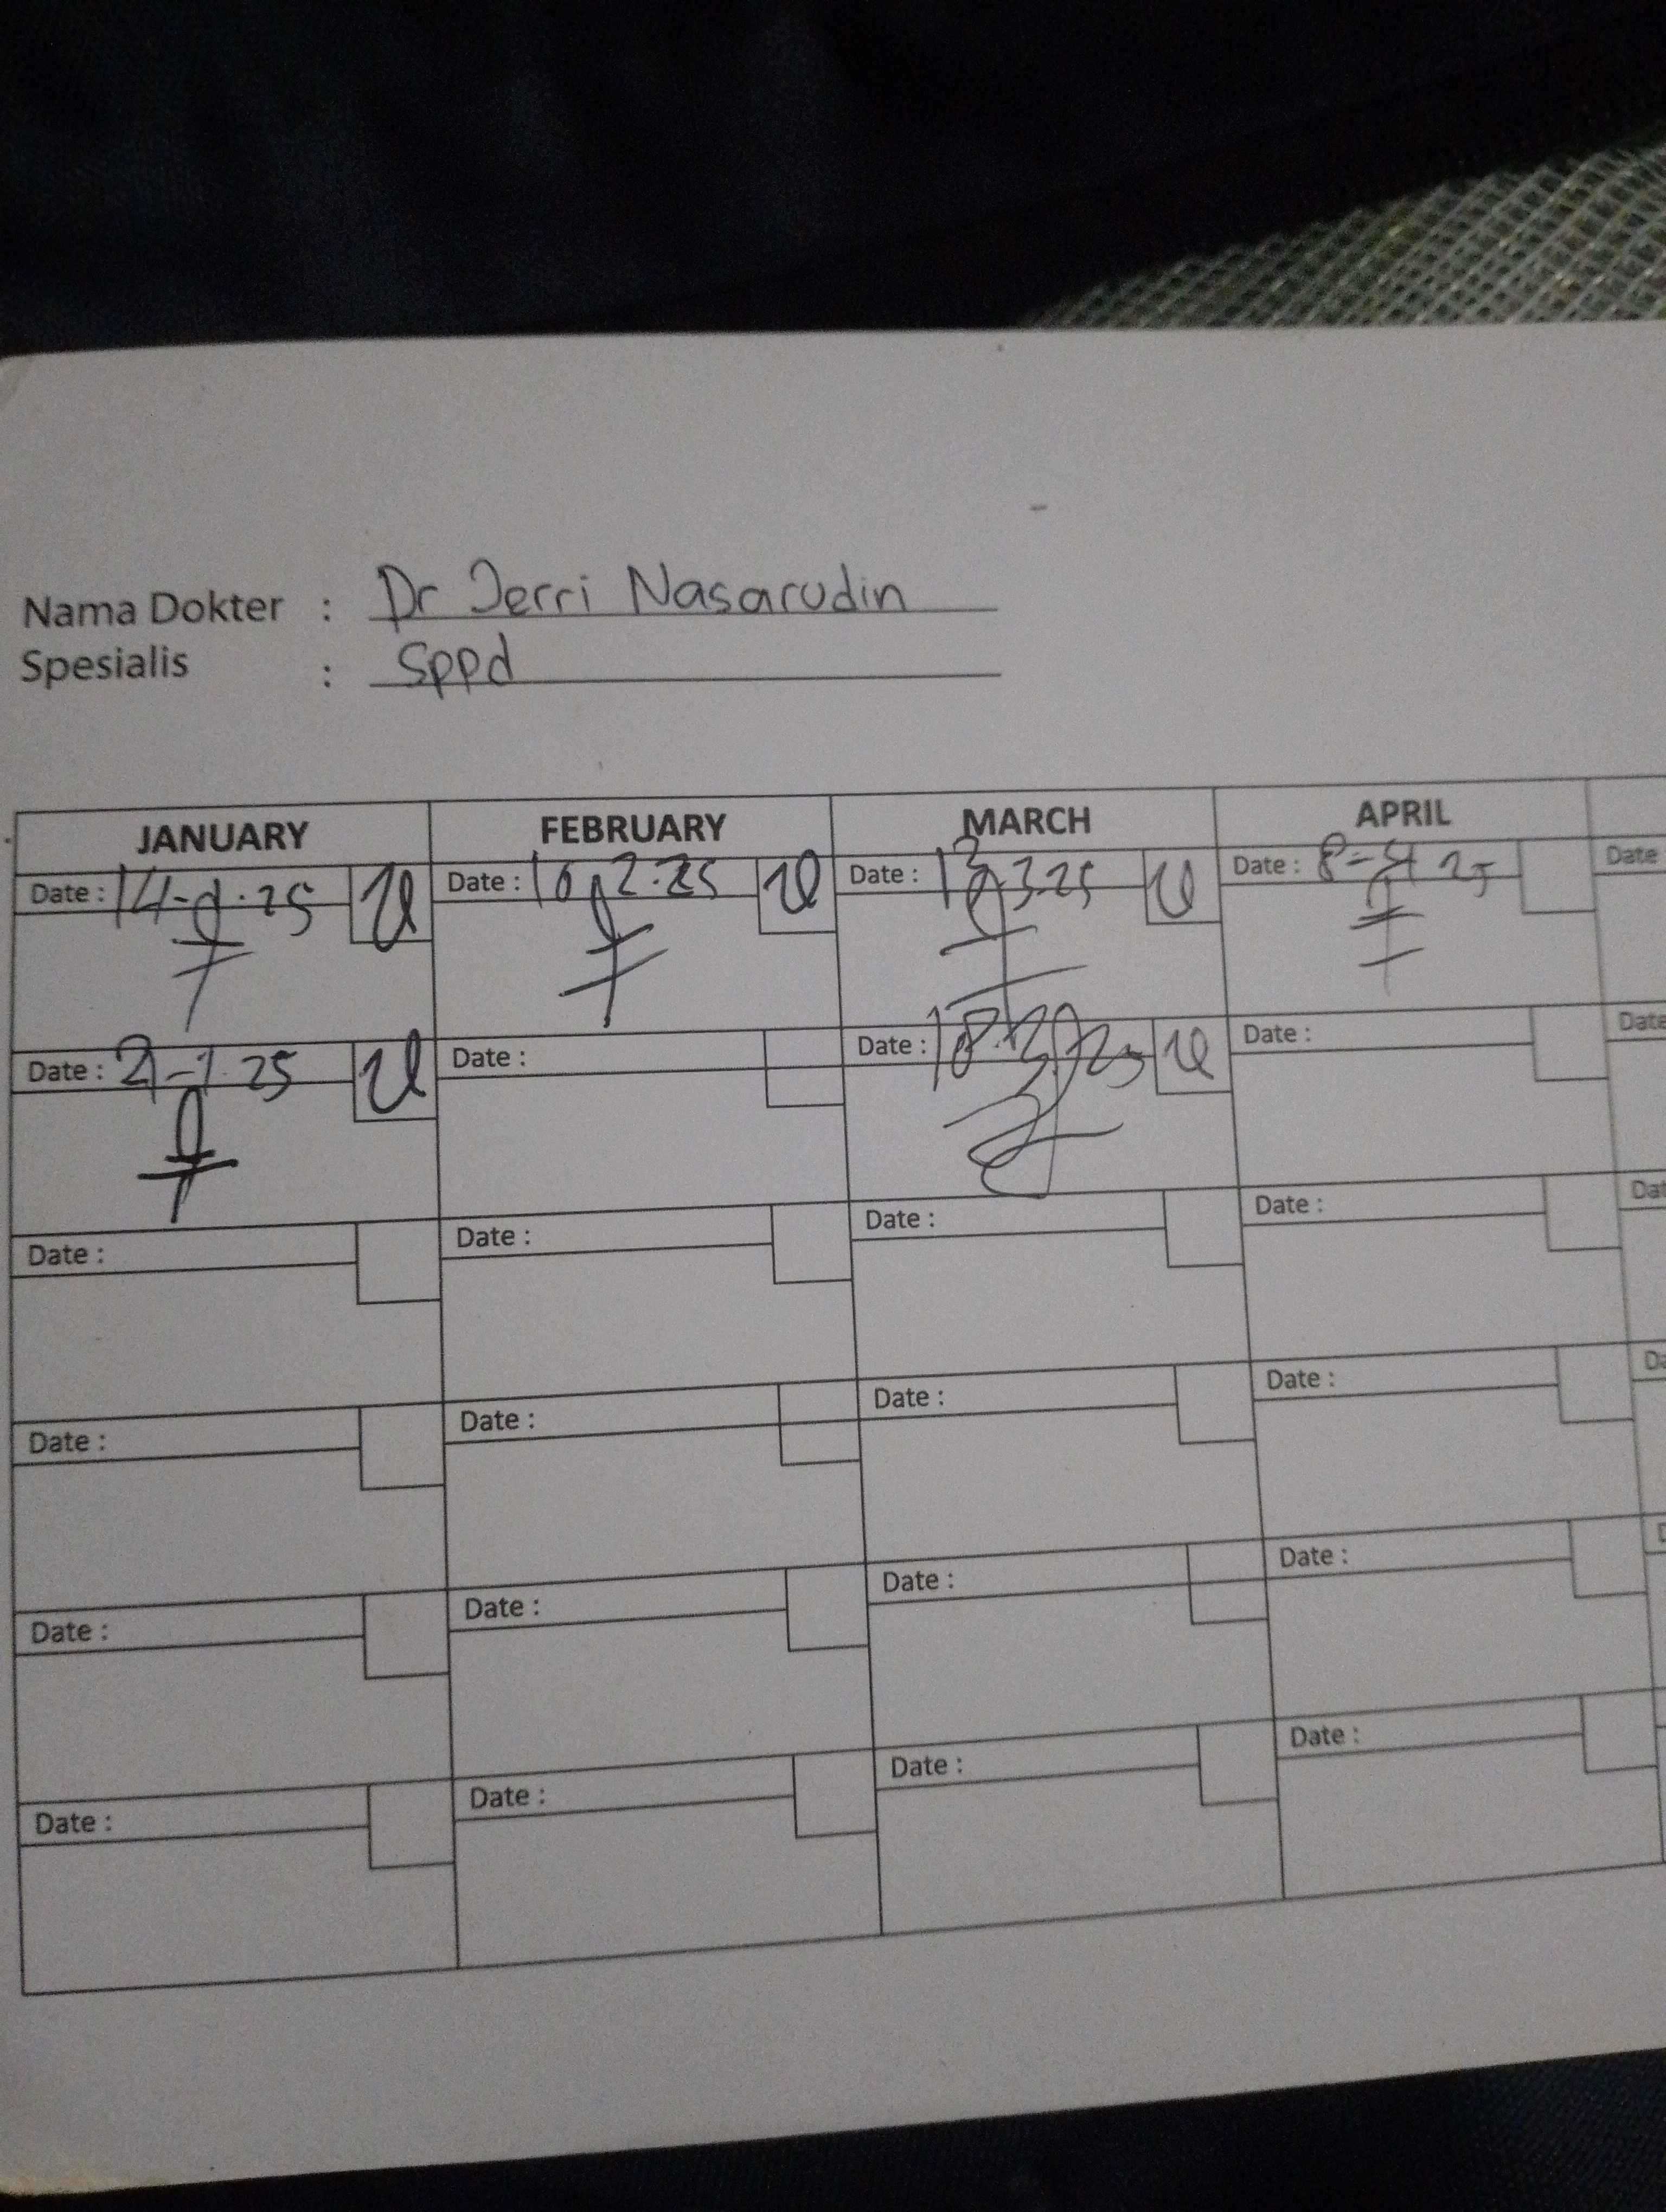 Nama Dokter : Dr Jerri Nasarudin
Spesialis : Sppd
JANUARY FEBRUARY MARCH APRIL
Date : 14-1-25 Date : 10.2.25 Date : 13.3.25 Date : 8-4 25 Date
Date : 21-1.25 Date : Date : Date : Date
Date : Date : Date : Date :
Date : Date : Date : Date :
Date : Date : Date : Date :
Date : Date : Date : Date :